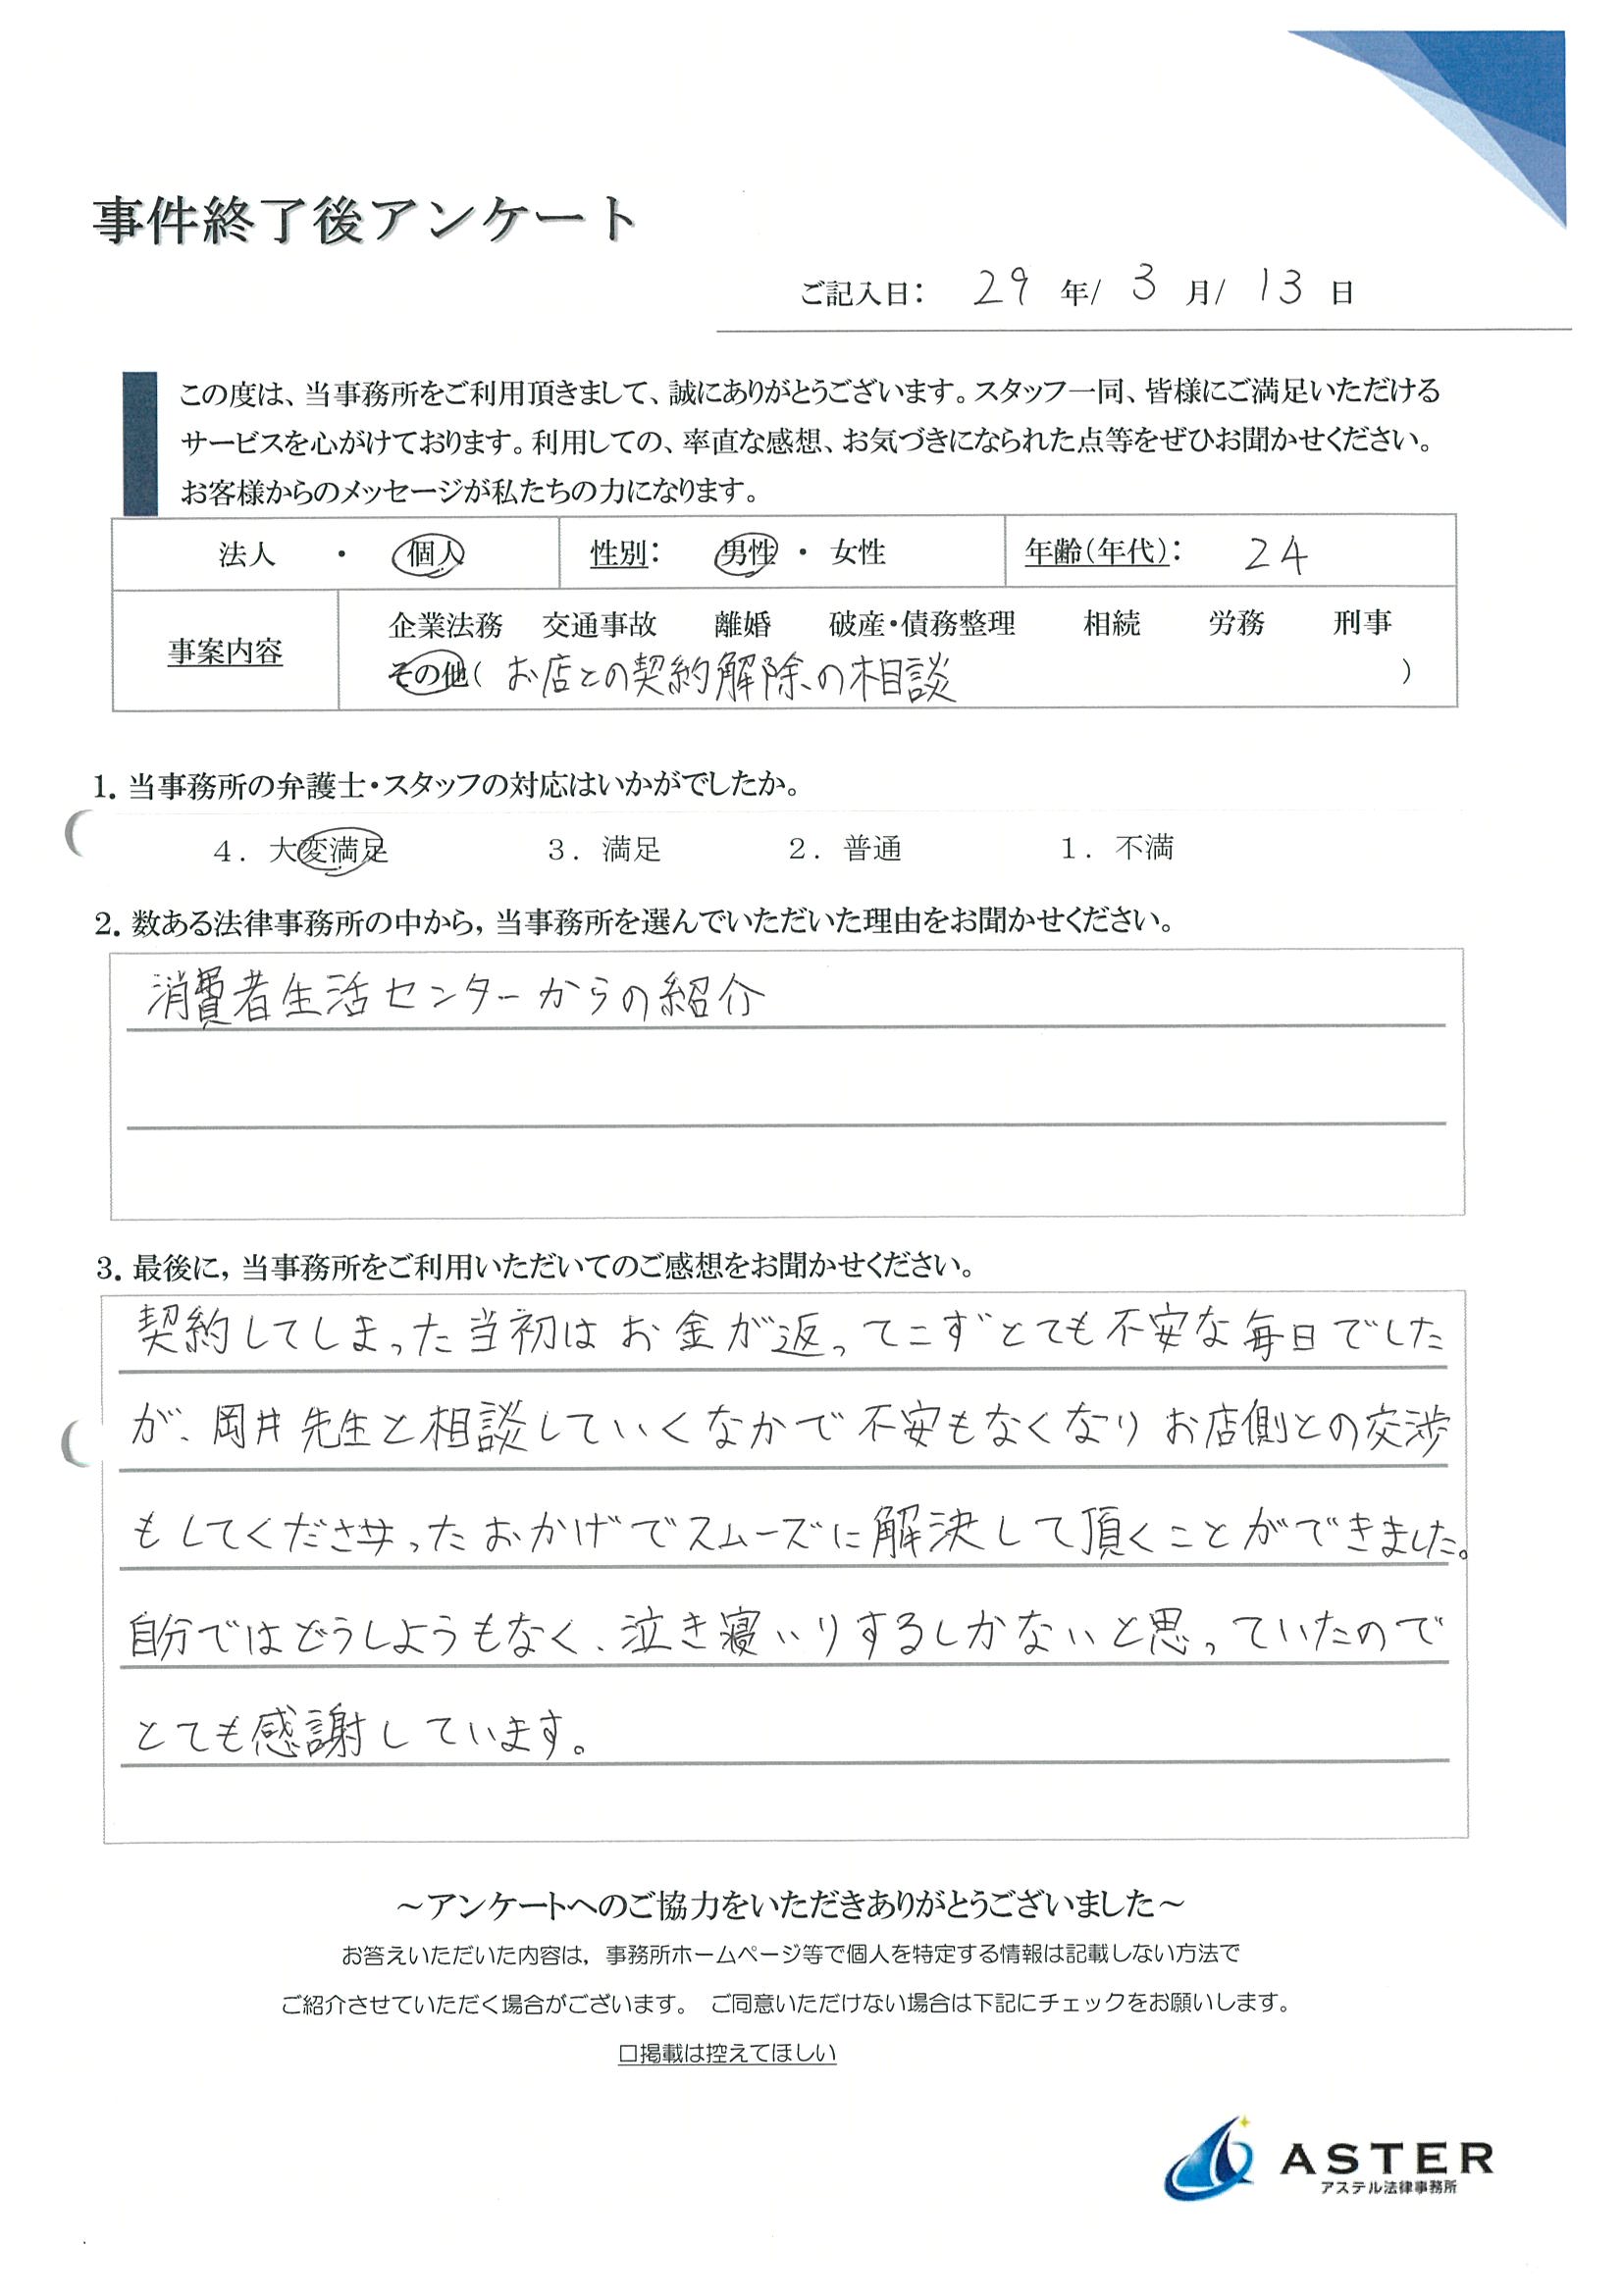 事件終了後アンケート
ご記入日： 29 年/ 3 月/ 13 日
この度は、当事務所をご利用頂きまして、誠にありがとうございます。スタッフ一同、皆様にご満足いただける
サービスを心がけております。利用しての、率直な感想、お気づきになられた点等をぜひお聞かせください。
お客様からのメッセージが私たちの力になります。
法人 ・ 個人 性別： 男性 ・ 女性 年齢（年代）： 24
事案内容 企業法務 交通事故 離婚 破産・債務整理 相続 労務 刑事
その他（ お店との契約解除の相談 ）
1. 当事務所の弁護士・スタッフの対応はいかがでしたか。
４． 大変満足 ３． 満足 ２． 普通 １． 不満
2. 数ある法律事務所の中から，当事務所を選んでいただいた理由をお聞かせください。
消費者生活センターからの紹介
3. 最後に，当事務所をご利用いただいてのご感想をお聞かせください。
契約してしまった当初はお金が返ってこずとても不安な毎日でした
が、岡井先生と相談していくなかで不安もなくなりお店側との交渉
もしてくださったおかげでスムーズに解決して頂くことができました。
自分ではどうしようもなく、泣き寝いりするしかないと思っていたので
とても感謝しています。
～アンケートへのご協力をいただきありがとうございました～
お答えいただいた内容は，事務所ホームページ等で個人を特定する情報は記載しない方法で
ご紹介させていただく場合がございます。 ご同意いただけない場合は下記にチェックをお願いします。
□掲載は控えてほしい
ASTER
アステル法律事務所